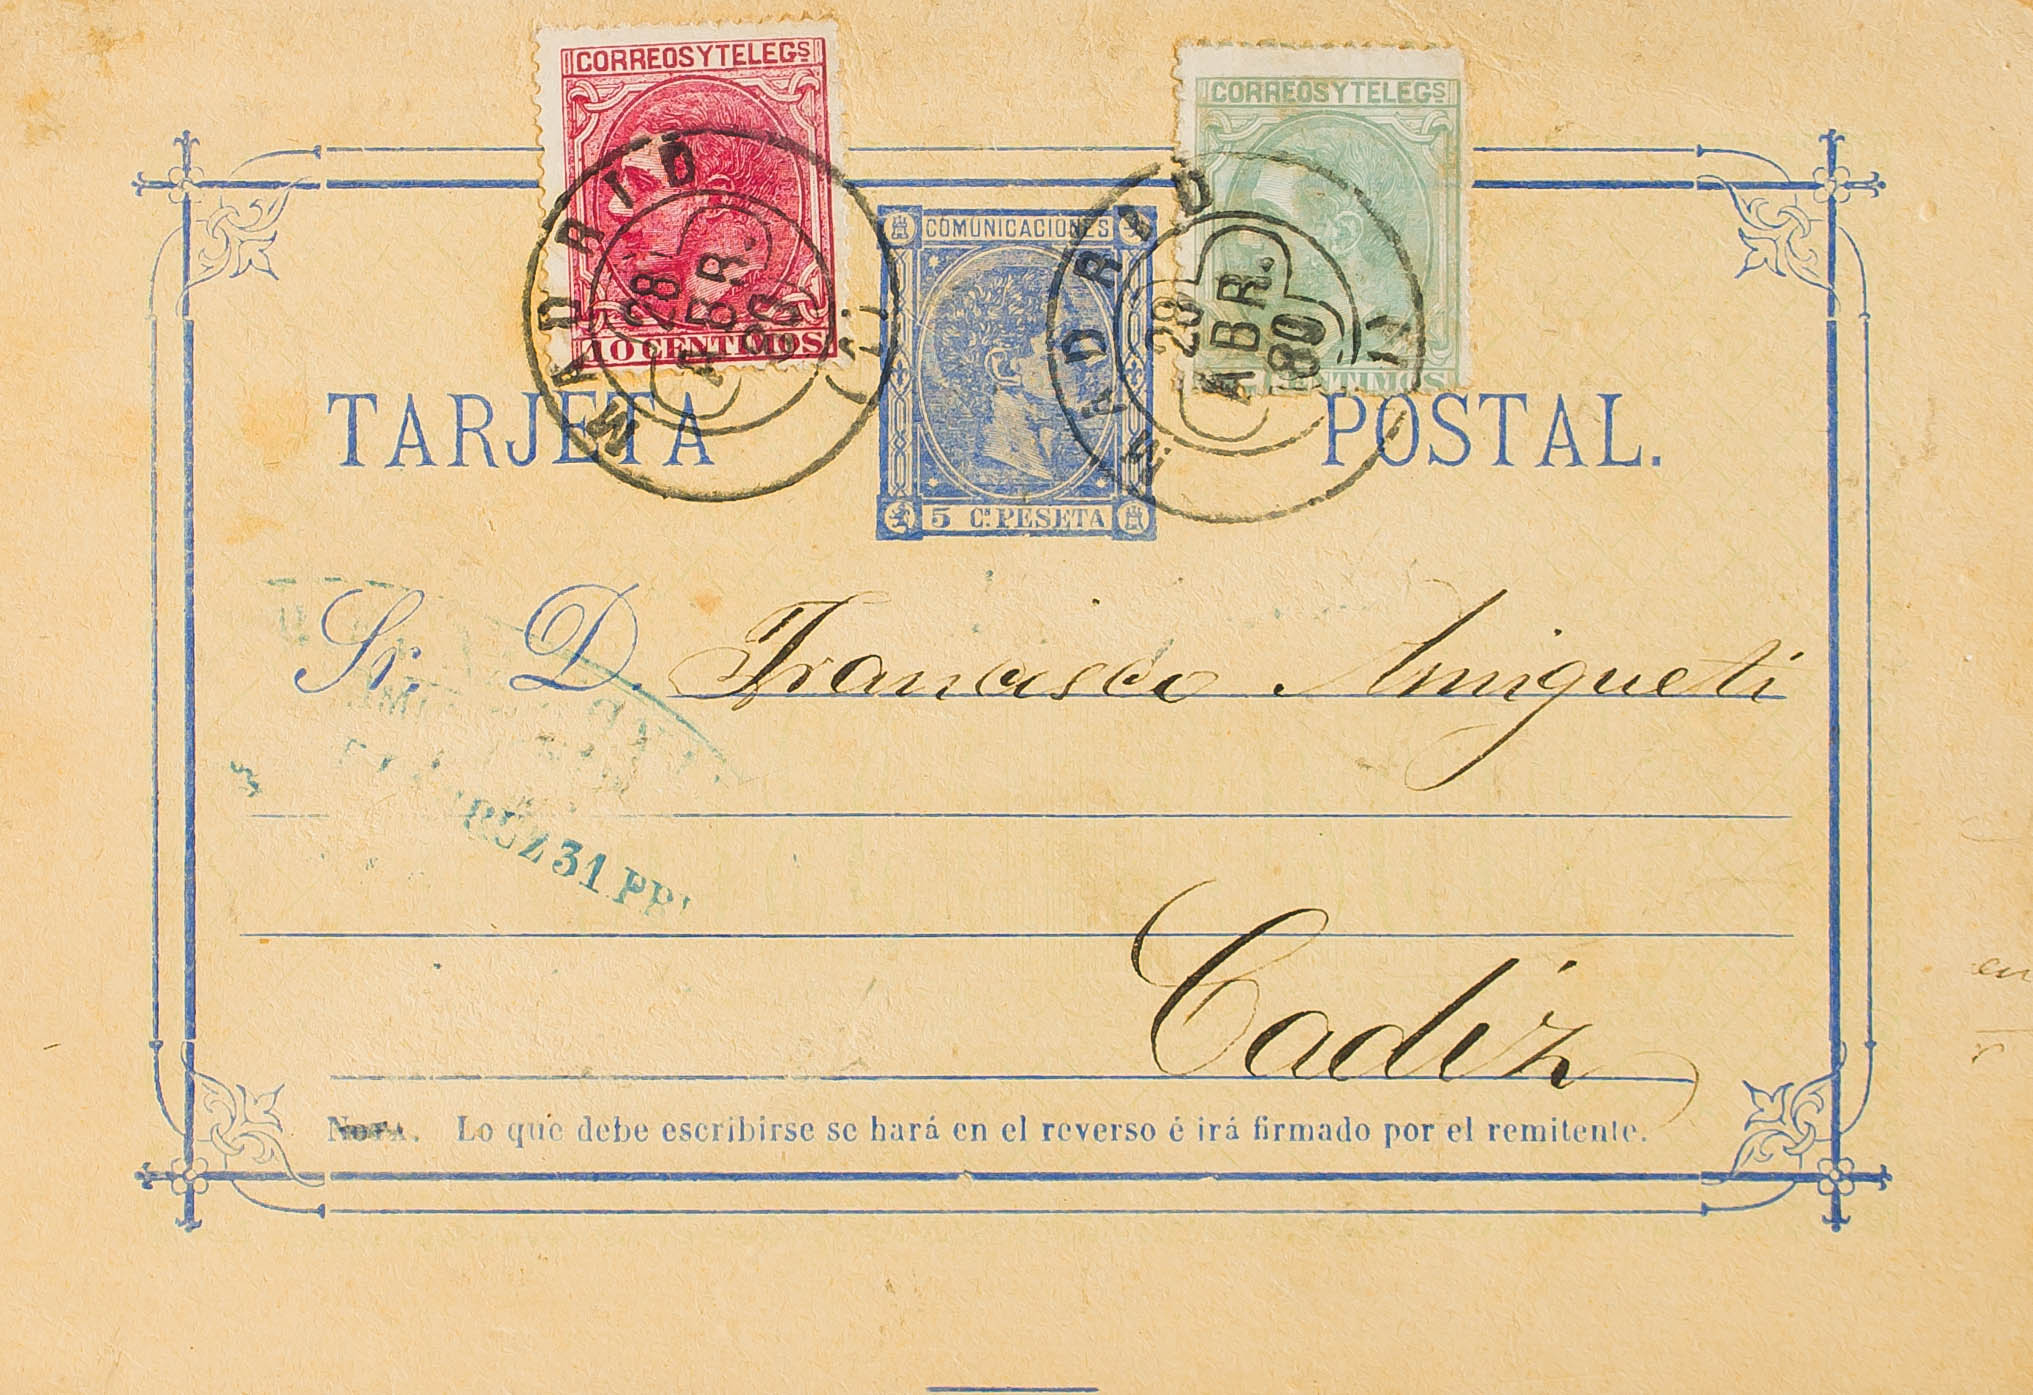 CORREOS Y TELEGS
CORREOS Y TELEGS
COMUNICACIONES
MADRID
28
ABR.
80
10 CENTIMOS
MADRID
28
ABR.
80
CENTIMOS
TARJETA POSTAL.
5 Cs PESETA
Sr. D. Francisco Amigueti
31 PRI
Cadiz
en
NOTA. Lo que debe escribirse se hará en el reverso é irá firmado por el remitente.